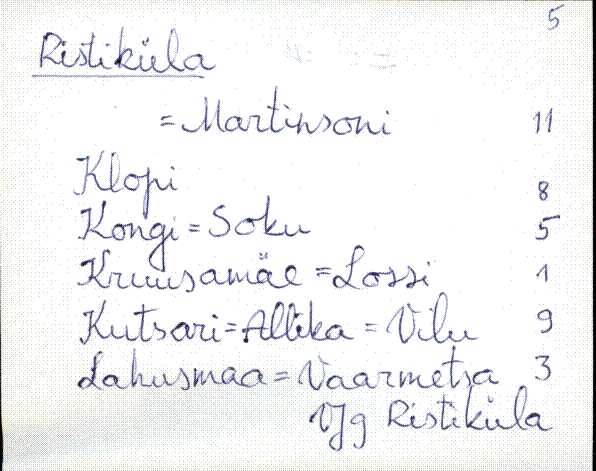 5
Ristiküla
= Martinsoni 11
Klopi 8
Kongi = Soku 5
Kruusamäe = Lossi 1
Kutsari = Allika = Vilu 9
Lahusmaa = Vaarmetsa 3
Vjg Ristiküla